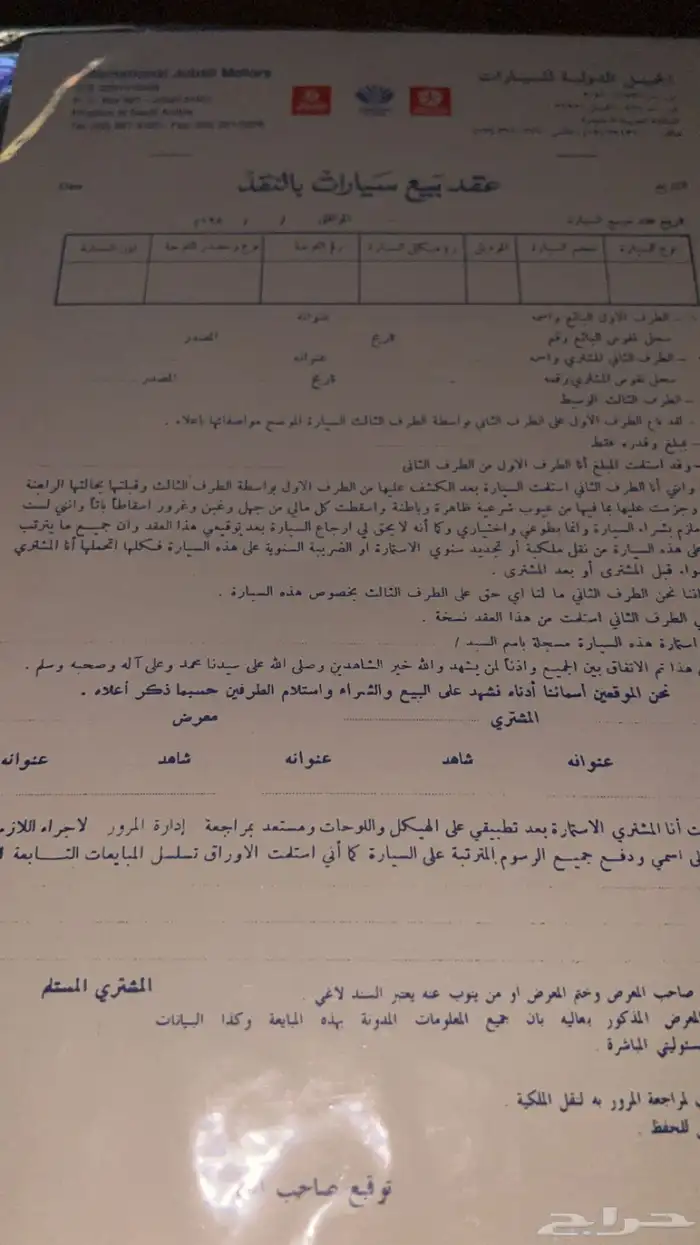 International Jubail Motors
الجبيل الدولية للسيارات
Kingdom of Saudi Arabia
المملكة العربية السعودية
عقد بيع سيارات بالنقد
Date
التاريخ
تاريخ عقد مبيع السيارة / / الموافق / / ١٩٨م
نوع السيارة حجم السيارة الموديل رقم هيكل السيارة رقم اللوحة نوع ومصدر اللوحة لون السيارة
- الطرف الاول البائع واسمه عنوانه
سجل نفوس البائع رقم تاريخ المصدر
- الطرف الثاني المشتري واسمه عنوانه
سجل نفوس المشتري رقمه تاريخ المصدر
- الطرف الثالث الوسيط
- لقد باع الطرف الاول على الطرف الثاني بواسطة الطرف الثالث السيارة الموضح مواصفاتها بأعلاه .
- بمبلغ وقدره فقط
- وقد استلمت المبلغ أنا الطرف الاول من الطرف الثاني
وانني أنا الطرف الثاني استلمت السيارة بعد الكشف عليها من الطرف الاول بواسطة الطرف الثالث وقبلتها بحالتها الراهنة
وجزمت عليها بما فيها من عيوب شرعية ظاهرة وباطنة واسقطت كل مالي من جهل وغبن وغرور اسقاطاً باتاً وانني لست
ملزم بشراء السيارة وانما بطوعي واختياري وكما أنه لا يحق لي ارجاع السيارة بعد توقيعي هذا العقد وان جميع ما يترتب
على هذه السيارة من نقل ملكية أو تجديد سنوي الاستمارة او الضريبة السنوية على هذه السيارة فكلها اتحملها أنا المشتري
سواء قبل المشترى أو بعد المشترى .
اننا نحن الطرف الثاني ما لنا اي حق على الطرف الثالث بخصوص هذه السيارة .
الطرف الثاني استلمت من هذا العقد نسخة .
استمارة هذه السيارة مسجلة باسم السيد /
هذا تم الاتفاق بين الجميع واذناً لمن يشهد والله خير الشاهدين وصلى الله على سيدنا محمد وعلى آله وصحبه وسلم .
نحن الموقعين أسمائنا أدناه نشهد على البيع والشراء واستلام الطرفين حسبما ذكر أعلاه .
المشتري معرض
عنوانه شاهد عنوانه شاهد عنوانه
أنا المشتري الاستمارة بعد تطبيقي على الهيكل واللوحات ومستعد بمراجعة إدارة المرور لاجراء
اسمي ودفع جميع الرسوم المترتبة على السيارة كما أني استلمت الاوراق تسلسل المبايعات التابعة
المشتري المستلم
صاحب المعرض وختم المعرض او من ينوب عنه يعتبر السند لاغي .
المعرض المذكور بعاليه بان جميع المعلومات المدونة بهذه المبايعة وكذا البيانات
المباشرة .
لمراجعة المرور به لنقل الملكية .
للحفظ .
توقيع صاحب
حراج